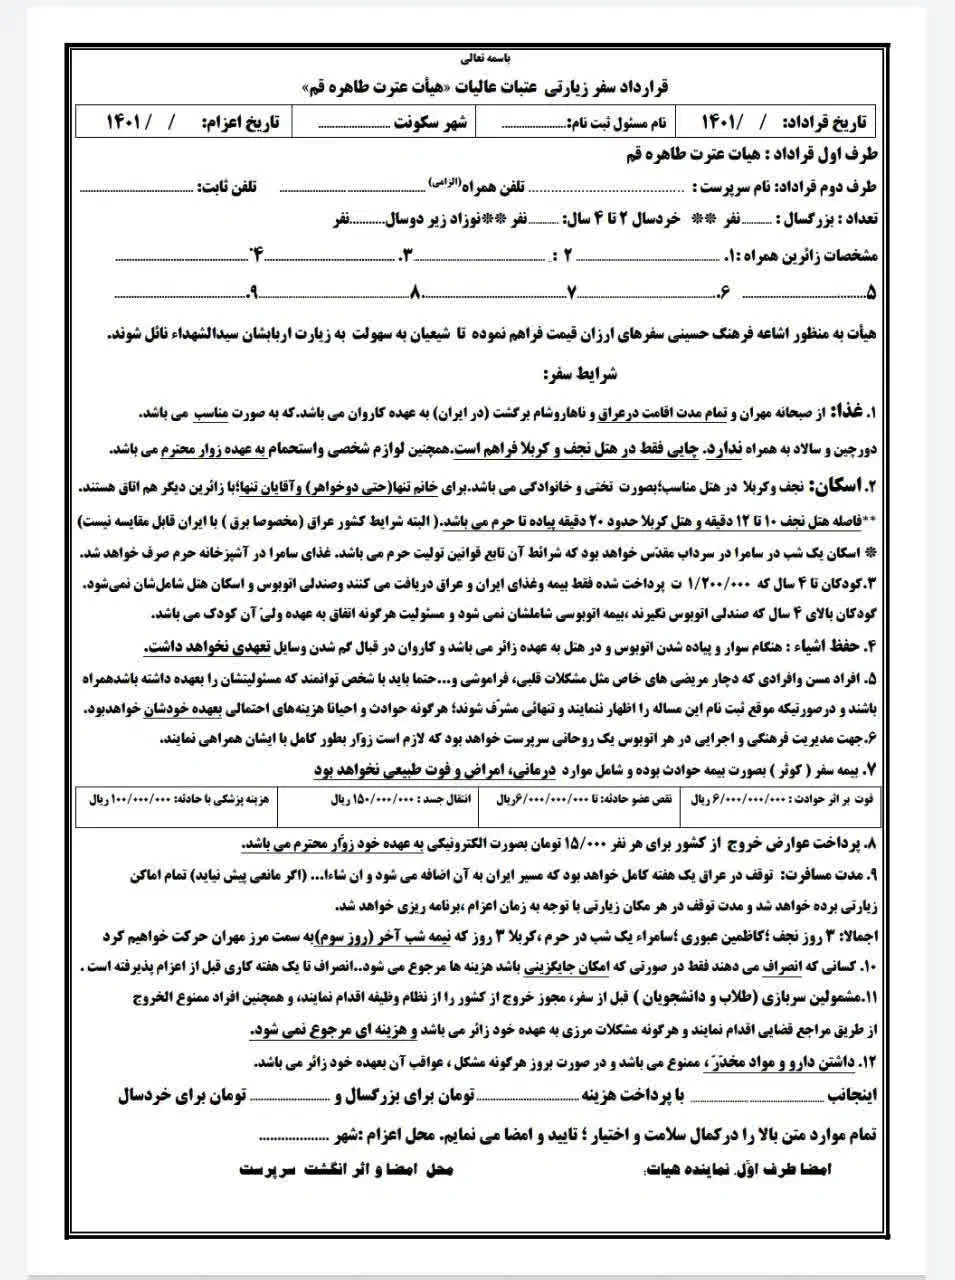 باسمه تعالی
قرارداد سفر زیارتی عتبات عالیات «هیأت عترت طاهره قم»
تاریخ قراداد: / /۱۴۰۱ نام مسئول ثبت نام:...................... شهر سکونت ........................ تاریخ اعزام: / / ۱۴۰۱
طرف اول قراداد : هیات عترت طاهره قم
طرف دوم قراداد: نام سرپرست : .................................... تلفن همراه(الزامی) ................................................ تلفن ثابت: ......................................
تعداد : بزرگسال : ..........نفر ** خردسال ۲ تا ۴ سال: ..........نفر **نوزاد زیر دوسال..........نفر
مشخصات زائرین همراه :۱. ................................................ ۲ : ............................................۳. ............................................۴ٔ .............................................
۵......................................... ۶...............................................۷................................................۸................................................۹.............................................
هیأت به منظور اشاعه فرهنگ حسینی سفرهای ارزان قیمت فراهم نموده تا شیعیان به سهولت به زیارت اربابشان سیدالشهداء نائل شوند.
شرایط سفر:
۱. غذا: از صبحانه مهران و تمام مدت اقامت درعراق و ناهاروشام برگشت (در ایران) به عهده کاروان می باشد.که به صورت مناسب می باشد.
دورچین و سالاد به همراه ندارد. چایی فقط در هتل نجف و کربلا فراهم است.همچنین لوازم شخصی واستحمام به عهده زوار محترم می باشد.
۲. اسکان: نجف وکربلا در هتل مناسب؛بصورت تختی و خانوادگی می باشد.برای خانم تنها(حتی دوخواهر) وآقایان تنها؛با زائرین دیگر هم اتاق هستند.
**فاصله هتل نجف ۱۰ تا ۱۲ دقیقه و هتل کربلا حدود ۲۰ دقیقه پیاده تا حرم می باشد.( البته شرایط کشور عراق (مخصوصا برق ) با ایران قابل مقایسه نیست)
* اسکان یک شب در سامرا در سرداب مقدّس خواهد بود که شرائط آن تابع قوانین تولیت حرم می باشد. غذای سامرا در آشپزخانه حرم صرف خواهد شد.
۳.کودکان تا ۴ سال که ۱/۲۰۰/۰۰۰ ت پرداخت شده فقط بیمه وغذای ایران و عراق دریافت می کنند وصندلی اتوبوس و اسکان هتل شامل‌شان نمی‌شود.
کودکان بالای ۴ سال که صندلی اتوبوس نگیرند ،بیمه اتوبوسی شاملشان نمی شود و مسئولیت هرگونه اتفاق به عهده ولیّ آن کودک می باشد.
۴. حفظ اشیاء : هنگام سوار و پیاده شدن اتوبوس و در هتل به عهده زائر می باشد و کاروان در قبال گم شدن وسایل تعهدی نخواهد داشت.
۵. افراد مسن وافرادی که دچار مریضی های خاص مثل مشکلات قلبی، فراموشی و...حتما باید با شخص توانمند که مسئولیتشان را بعهده داشته باشدهمراه
باشند و درصورتیکه موقع ثبت نام این مساله را اظهار ننمایند و تنهائی مشرّف شوند؛ هرگونه حوادث و احیانا هزینه‌های احتمالی بعهده خودشان خواهدبود.
۶.جهت مدیریت فرهنگی و اجرایی در هر اتوبوس یک روحانی سرپرست خواهد بود که لازم است زوّار بطور کامل با ایشان همراهی نمایند.
۷. بیمه سفر ( کوثر ) بصورت بیمه حوادث بوده و شامل موارد درمانی، امراض و فوت طبیعی نخواهد بود
فوت بر اثر حوادث : ۶/۰۰۰/۰۰۰/۰۰۰ ریال نقص عضو حادثه: تا ۶/۰۰۰/۰۰۰/۰۰۰ریال انتقال جسد : ۱۵۰/۰۰۰/۰۰۰ ریال هزینه پزشکی با حادثه: ۱۰۰/۰۰۰/۰۰۰ ریال
۸. پرداخت عوارض خروج از کشور برای هر نفر ۱۵/۰۰۰ تومان بصورت الکترونیکی به عهده خود زوّار محترم می باشد.
۹. مدت مسافرت: توقف در عراق یک هفته کامل خواهد بود که مسیر ایران به آن اضافه می شود و ان شاءا... (اگر مانعی پیش نیاید) تمام اماکن
زیارتی برده خواهد شد و مدت توقف در هر مکان زیارتی با توجه به زمان اعزام ،برنامه ریزی خواهد شد.
اجمالا: ۳ روز نجف ؛کاظمین عبوری ؛سامراء یک شب در حرم ،کربلا ۳ روز که نیمه شب آخر (روز سوم)به سمت مرز مهران حرکت خواهیم کرد
۱۰. کسانی که انصراف می دهند فقط در صورتی که امکان جایگزینی باشد هزینه ها مرجوع می شود..انصراف تا یک هفته کاری قبل از اعزام پذیرفته است .
۱۱.مشمولین سربازی (طلاب و دانشجویان ) قبل از سفر، مجوز خروج از کشور را از نظام وظیفه اقدام نمایند، و همچنین افراد ممنوع الخروج
از طریق مراجع قضایی اقدام نمایند و هرگونه مشکلات مرزی به عهده خود زائر می باشد و هزینه ای مرجوع نمی شود.
۱۲. داشتن دارو و مواد مخدّرّ ، ممنوع می باشد و در صورت بروز هرگونه مشکل ، عواقب آن بعهده خود زائر می باشد.
اینجانب ............................................ با پرداخت هزینه ..................................تومان برای بزرگسال و .......................... تومان برای خردسال
تمام موارد متن بالا را درکمال سلامت و اختیار ؛ تایید و امضا می نمایم. محل اعزام :شهر ...................
امضا طرف اوّل. نماینده هیات: محل امضا و اثر انگشت سرپرست